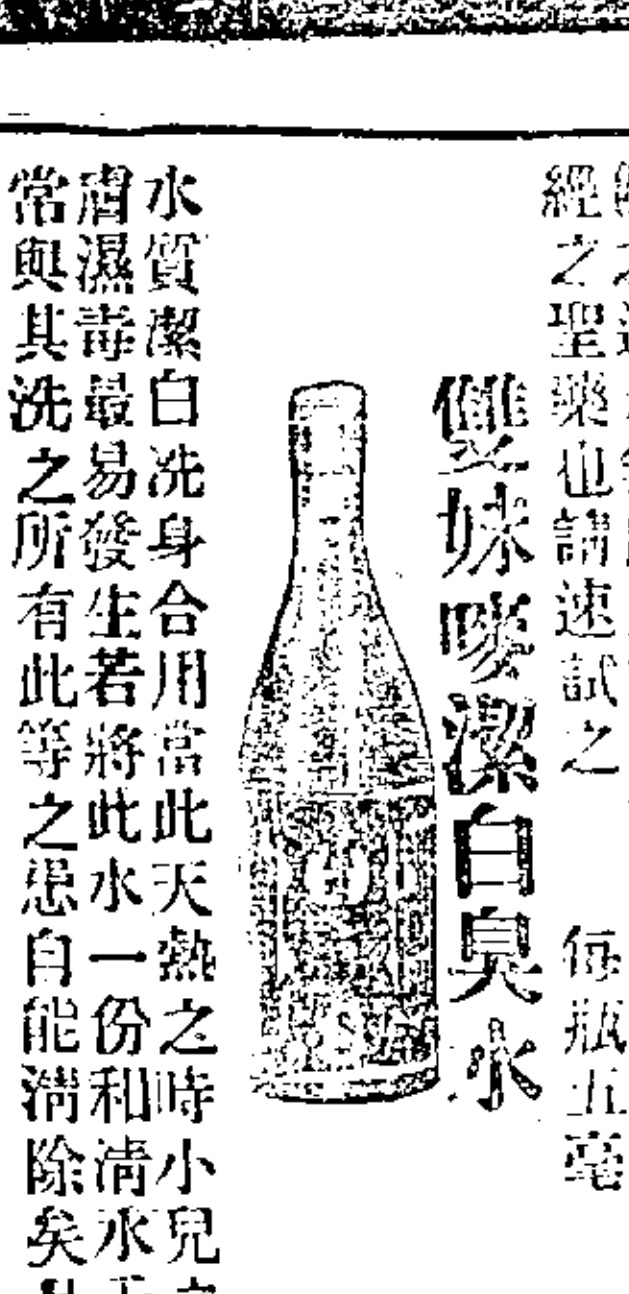 經之聖藥也請速試之 每瓶五毫
雙妹嘜潔白臭水
水質潔白洗身合用當此天熱之時小兒之
膚濕毒最易發生若將此水一份和清水
常與其洗之所有此等之患自能清除矣